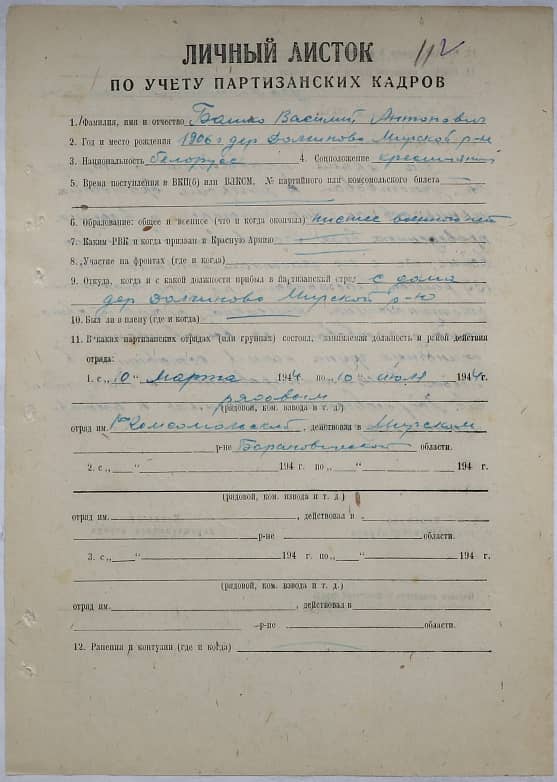 ЛИЧНЫЙ ЛИСТОК 112
ПО УЧЕТУ ПАРТИЗАНСКИХ КАДРОВ
1. Фамилия, имя и отчество Башко Василий Антонович
2. Год и место рождения 1906 г дер Долчиново Мирской р-н
3. Национальность белорус 4. Соцположение крестьянин
5. Время поступления в ВКП(б) или ВЛКСМ, № партийного или комсомольского билета
6. Образование: общее и военное (что и когда окончил) низшее военного нет
7. Каким РВК и когда призван в Красную Армию
8. Участие на фронтах (где и когда)
9. Откуда, когда и с какой должности прибыл в партизанский отряд с дома
дер Долчиново Мирской р-н
10. Был ли в плену (где и когда)
11. В каких партизанских отрядах (или группах) состоял, занимаемая должность и район действия
отряда:
1. с „10" марта 1944 по „10" июля 1944 г.
рядовым
(рядовой, ком. взвода и т. д.)
отряд им. Комсомольский, действовал в Мирском
р-не Барановичской области.
2. с „ " 194 г по „ " 194 г.
(рядовой, ком. взвода и т. д.)
отряд им. , действовал в
р-не области.
3. с „ " 194 г по „ " 194 г.
(рядовой, ком. взвода и т. д.)
отряд им. , действовал в
р-не области.
12. Ранения и контузии (где и когда)